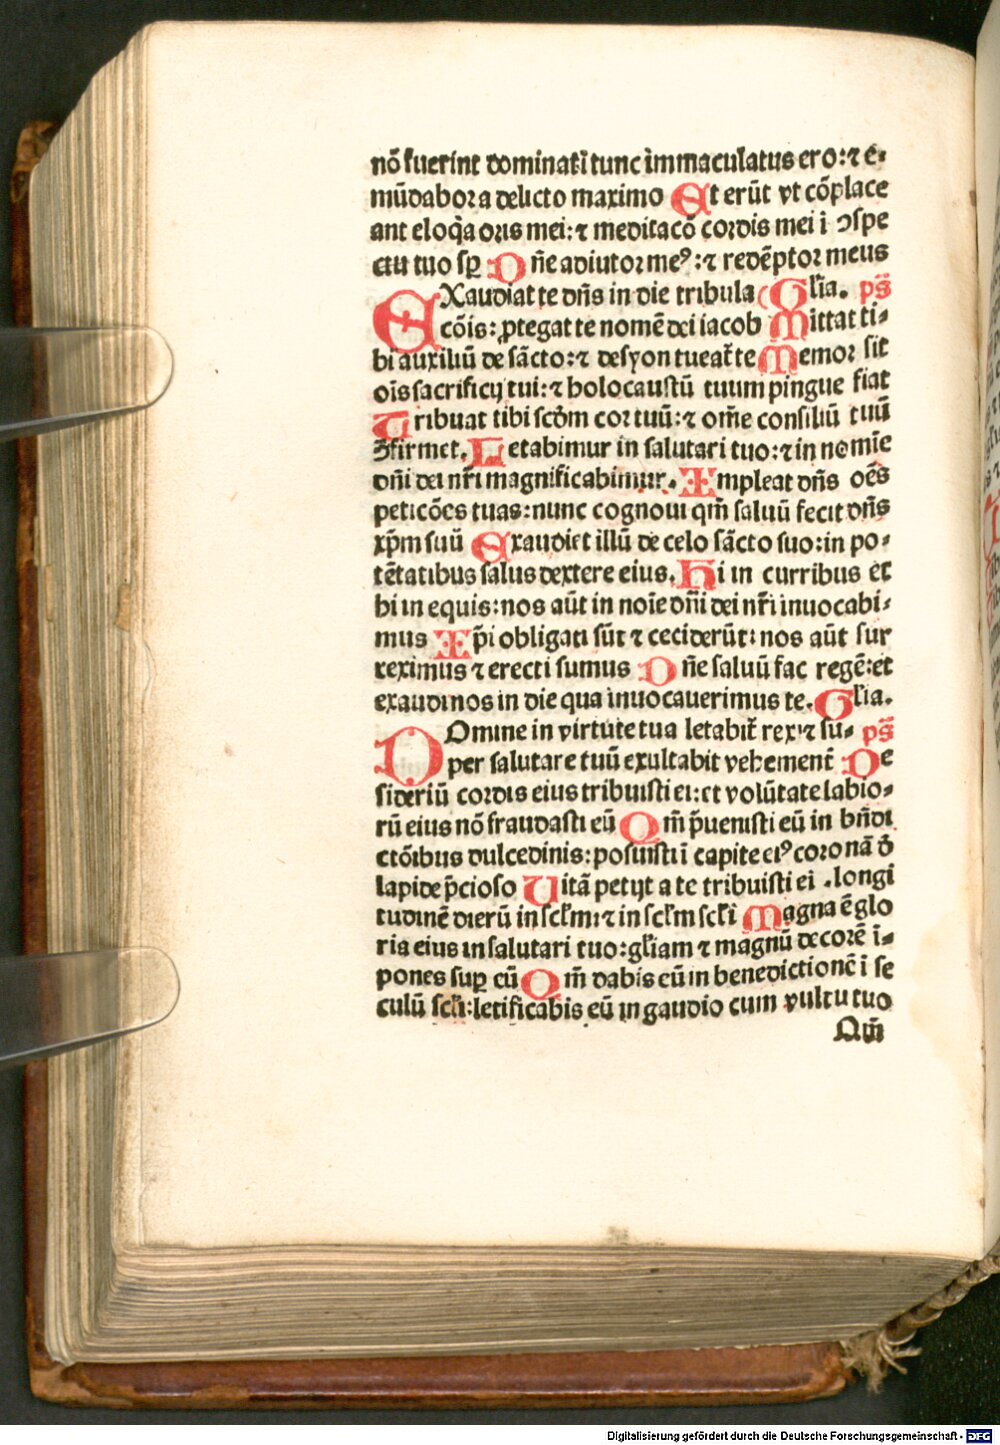 nō fuerint dominati tunc immaculatus ero: ⁊ e-
mūdabor a delicto maximo Et erūt vt cōplace
ant eloq̄a oris mei: ⁊ meditacō cordis mei ī ↄspe
ctu tuo sp̄ Dn̄e adiutor meꝰ: ⁊ redēptor meus
EXaudiat te dn̄s in die tribula (Gl̄ia. ps̄
cōis: ꝓtegat te nomē dei iacob Mittat ti-
bi auxiliū de sācto: ⁊ de syon tueat̄ te Memor sit
oīs sacrificij tui: ⁊ holocaustū tuum pingue fiat
Tribuat tibi scd̄m cor tuū: ⁊ om̄e consiliū tuū
ↄfirmet. Letabimur in salutari tuo: ⁊ in nomīe
dn̄i dei nr̄i magnificabimur. Impleat dn̄s oēs
peticōes tuas: nunc cognoui qm̄ saluū fecit dn̄s
xp̄m suū Exaudiet illū de celo sācto suo: in po-
tētatibus salus dextere eius. Hi in curribus et
hi in equis: nos aūt in noīe dn̄i dei nr̄i inuocabi-
mus Ip̄i obligati sūt ⁊ ceciderūt: nos aūt sur
reximus ⁊ erecti sumus Dn̄e saluū fac regē: et
exaudi nos in die qua inuocauerimus te. Gl̄ia.
DOmine in virtute tua letabit̄ rex: ⁊ su- ps̄
per salutare tuū exultabit vehement̄ De
sideriū cordis eius tribuisti ei: et volūtate labio-
rū eius nō fraudasti eū Qm̄ p̄uenisti eū in bn̄di
ctōibus dulcedinis: posuisti ī capite eiꝰ coronā d̄
lapide p̄cioso Vitā petijt a te tribuisti ei . longi
tudinē dierū in scl̄m: ⁊ in scl̄m scl̄i Magna ē glo
ria eius in salutari tuo: gl̄iam ⁊ magnū decorē ī-
pones sup̄ eū Qm̄ dabis eū in benedictionē ī se
culū scl̄i: letificabis eū in gaudio cum vultu tuo
Qm̄
Digitalisierung gefördert durch die Deutsche Forschungsgemeinschaft - DFG